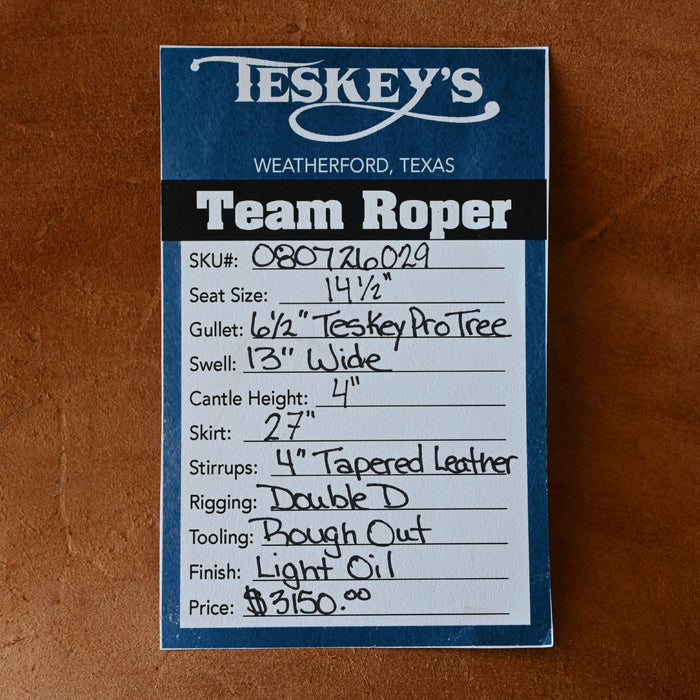 TESKEY'S
WEATHERFORD, TEXAS
Team Roper
SKU#: 080726029
Seat Size: 14 1/2"
Gullet: 6 1/2" Teskey Pro Tree
Swell: 13" Wide
Cantle Height: 4"
Skirt: 27"
Stirrups: 4" Tapered Leather
Rigging: Double D
Tooling: Rough Out
Finish: Light Oil
Price: $3150.00